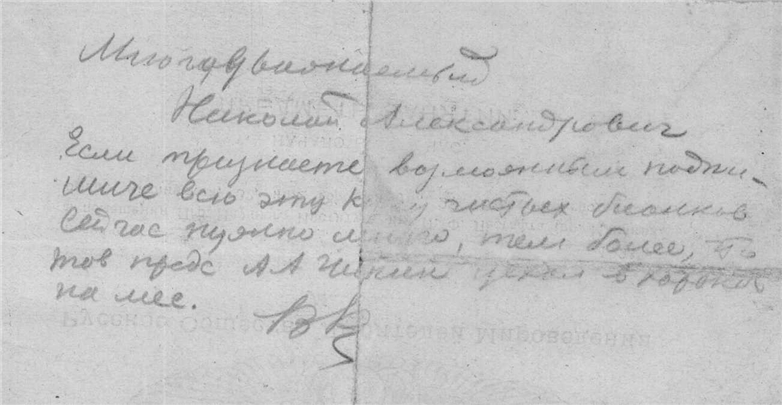 Многоуважаемый
Николай Александрович
Если признаете возможным подпи-
шите всю эту кучу чистых бланков
Сейчас нужно много, тем более, что
тов предс А А Чикин уехал в
на мес.
ВК